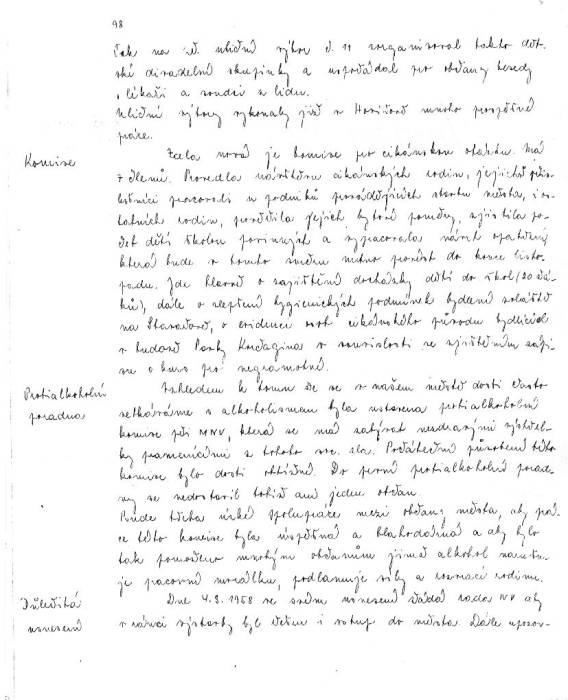 98
Tak na př. uliční výbor č. 11 zorganisoval takto dět-
ské divadelní skupinky a uspořádal pro občany besedy
s lékaři a soudci z lidu.
Uliční výbory vykonaly již v Hoviňově mnoho prospěšné
práce.
Komise
Zcela nová je komise pro cikánskou otázku. Má
7 členů. Provedla návštěvu cikánských rodin, jejichž přís-
lušníci pracovali u podniků provádějících stavbu města, i os-
tatních rodin, prověřila jejich bytové poměry, zjistila po-
čet dětí školou povinných a vypracovala návrh opatření,
která bude v tomto směru nutno provést do konce listo-
padu. Jde hlavně o zajištění docházky dětí do škol (20 žá-
ků), dále o zlepšení hygienických podmínek bydlení zvláště
na Staračově, o evidenci osob cikánského původu bydlících
v budově Party v souvislosti se zjištěním zápi-
su o kurs pro negramotné.
Protialkoholní
poradna
Vzhledem k tomu že se v našem městě dosti často
setkáváme s alkoholismem byla ustavena protialkoholní
komise při MNV, která se má zabývat nezdravými výstřel-
ky pramenícími z tohoto soc. zla. Počáteční působení této
komise bylo dosti obtížné. Do první protialkoholní porad-
ny se nedostavil totiž ani jeden občan.
Bude třeba úzké spolupráce mezi občany města, aby prá-
ce této komise byla úspěšná a blahodárná a aby bylo
tak pomoženo mnohým občanům jimž alkohol narušu-
je pracovní morálku, podlamuje síly a rozvrací rodinu.
Důležitá
usnesení
Dne 4.3.1958 ve svém usnesení žádal rada NV aby
v rámci výstavby byl řešen i vstup do města. Dále upozor-